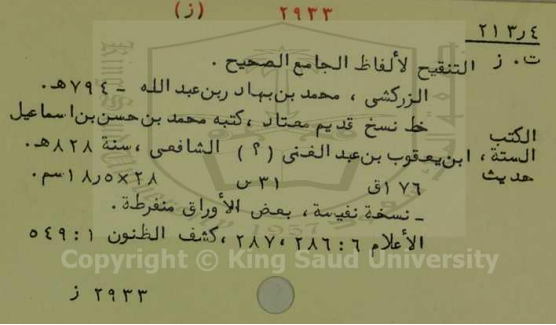 ٢٩٣٣ (ز)
٢١٣ر٤
ت. ز التنقيح لألفاظ الجامع الصحيح .
الزركشى ، محمد بن بهاد ربن عبد الله - ٧٩٤هـ.
خط نسخ قديم معتاد ، كتبه محمد بن حسن بن اسماعيل
الكتب الستة ، ابن يعقوب بن عبد الغنى (؟) الشافعى ، سنة ٨٢٨هـ.
حديث ١٧٦ق ٣١س ٢٨×٥ر١٨سم.
ـ نسخة نفيسة ، بعض الأوراق منفرطة .
الأعلام ٦: ٢٨٦، ٢٨٧ ، كشف الظنون ١: ٥٤٩
Copyright © King Saud University
٢٩٣٣ ز
1957